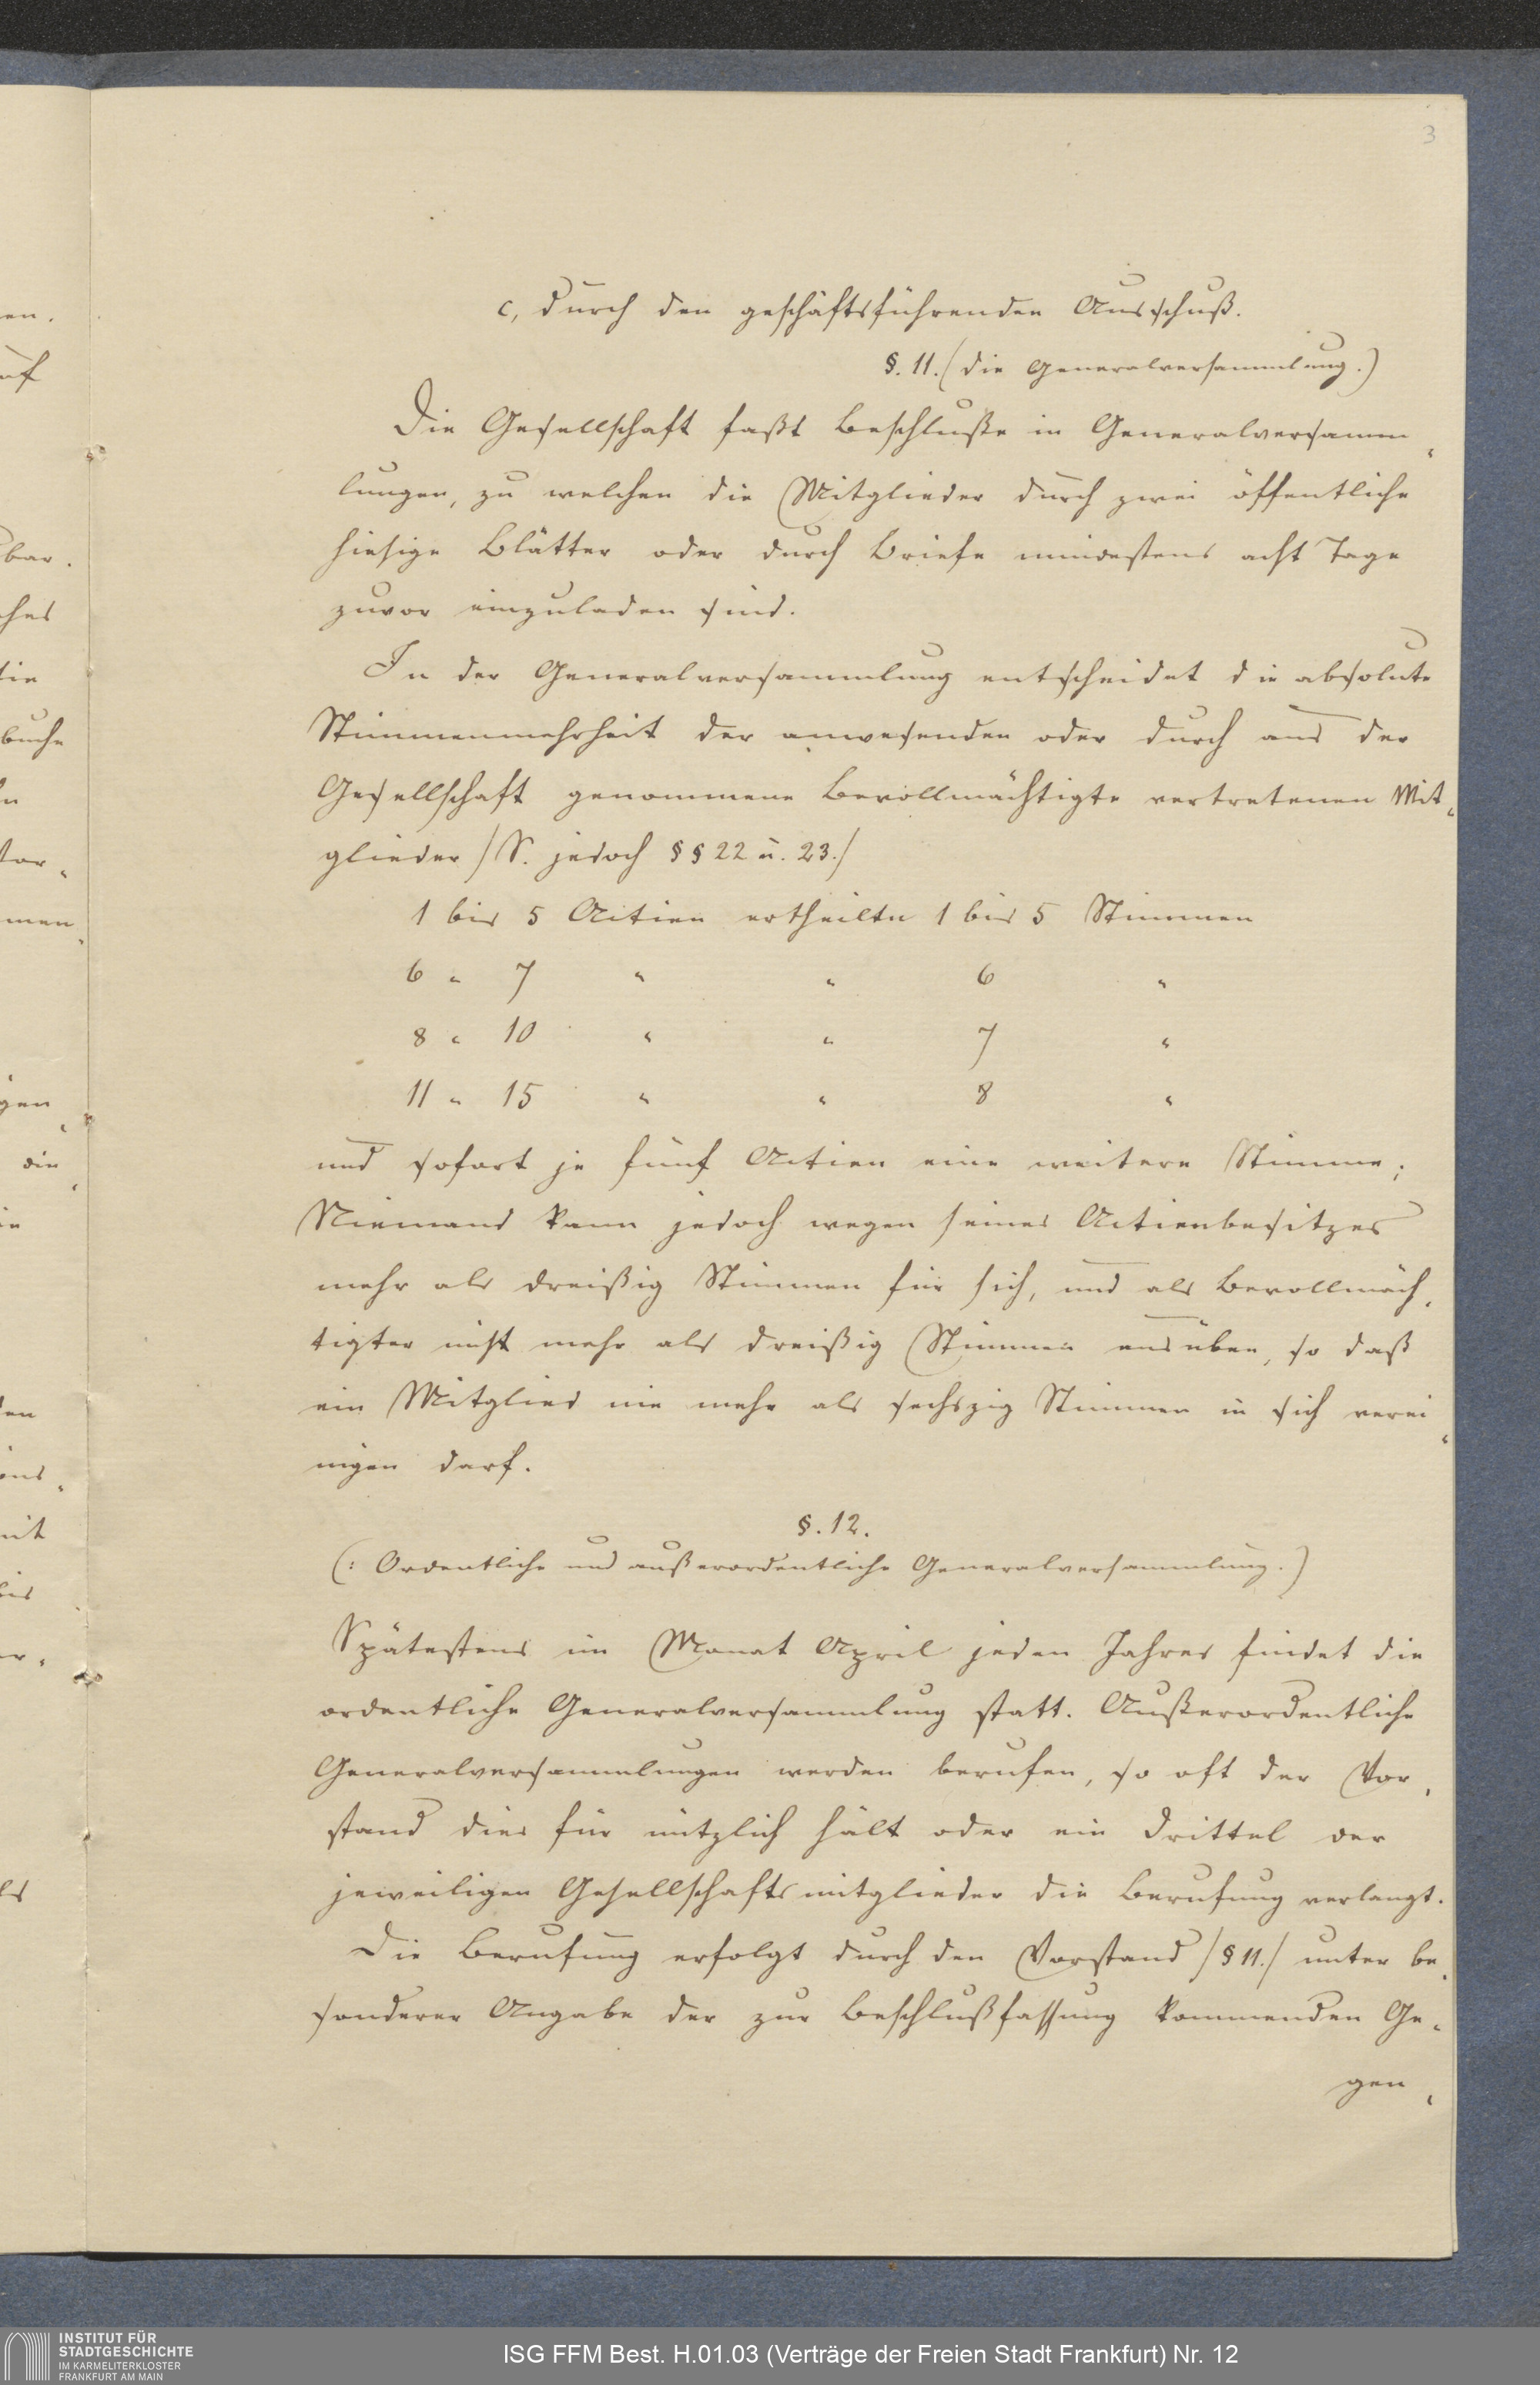 3
c, durch den geschäftsführenden Ausschuß.
§. 11. (die Generalversammlung.)
Die Gesellschaft faßt Beschluße in Generalversamm-
lungen, zu welchen die Mitglieder durch zwei öffentliche
hiesige Blätter oder durch Briefe mindestens acht Tage
zuvor einzuladen sind.
In der Generalversammlung entscheidet die absolute
Stimmenmehrheit der anwesenden oder durch aus der
Gesellschaft genommene Bevollmächtigte vertretenen Mit-
glieder /S. jedoch §§ 22 u. 23./
1 bis 5 Actien ertheilen 1 bis 5 Stimmen
6 " 7 " " 6 "
8 " 10 " " 7 "
11 " 15 " " 8 "
und sofort je fünf Actien eine weitere Stimme;
Niemand kann jedoch wegen seines Actienbesitzes
mehr als dreißig Stimmen für sich, und als Bevollmäch-
tigter nicht mehr als dreißig Stimmen ausüben, so daß
ein Mitglied nie mehr als sechszig Stimmen in sich verei-
nigen darf.
§. 12.
(: Ordentliche und außerordentliche Generalversammlung.)
Spätestens im Monat April jeden Jahres findet die
ordentliche Generalversammlung statt. Außerordentliche
Generalversammlungen werden berufen, so oft der Vor-
stand dies für nützlich hält oder ein Drittel der
jeweiligen Gesellschaftsmitglieder die Berufung verlangt.
Die Berufung erfolgt durch den Vorstand /§ 11./ unter be-
sonderer Angabe der zur Beschlußfassung kommenden Ge-
gen-
INSTITUT FÜR
STADTGESCHICHTE
IM KARMELITERKLOSTER
FRANKFURT AM MAIN
ISG FFM Best. H.01.03 (Verträge der Freien Stadt Frankfurt) Nr. 12